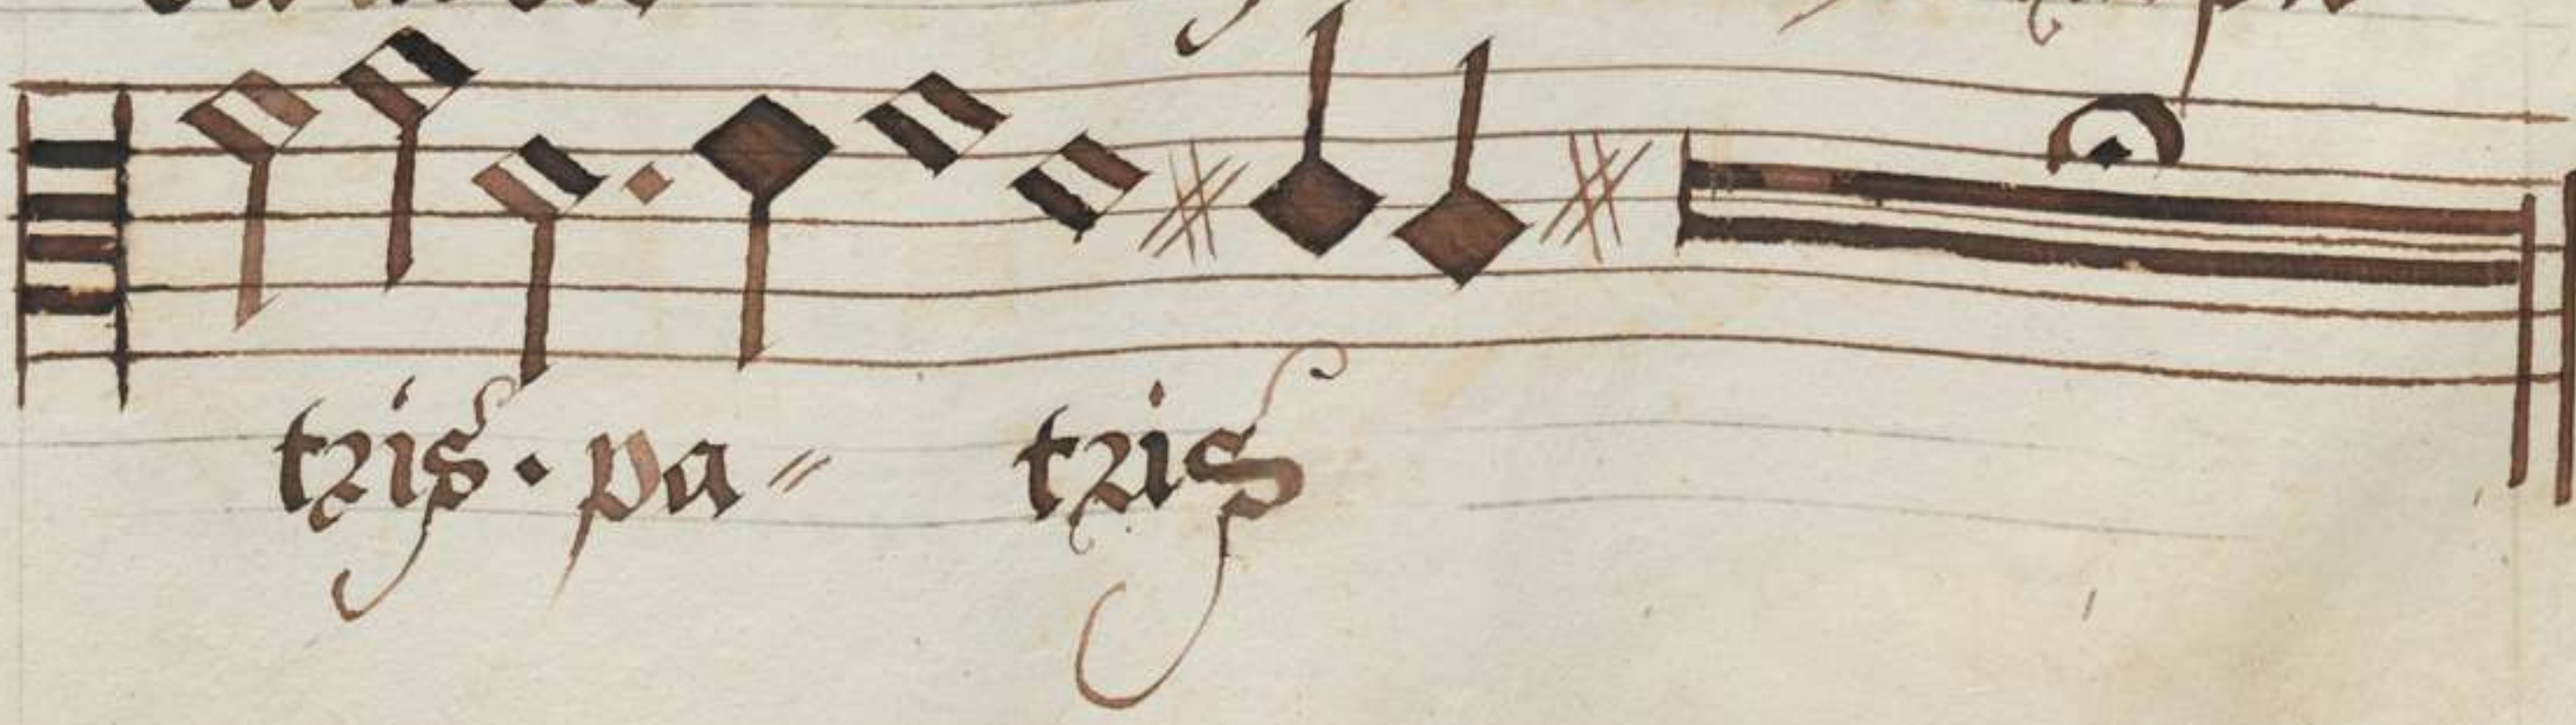 tris · pa-
tris